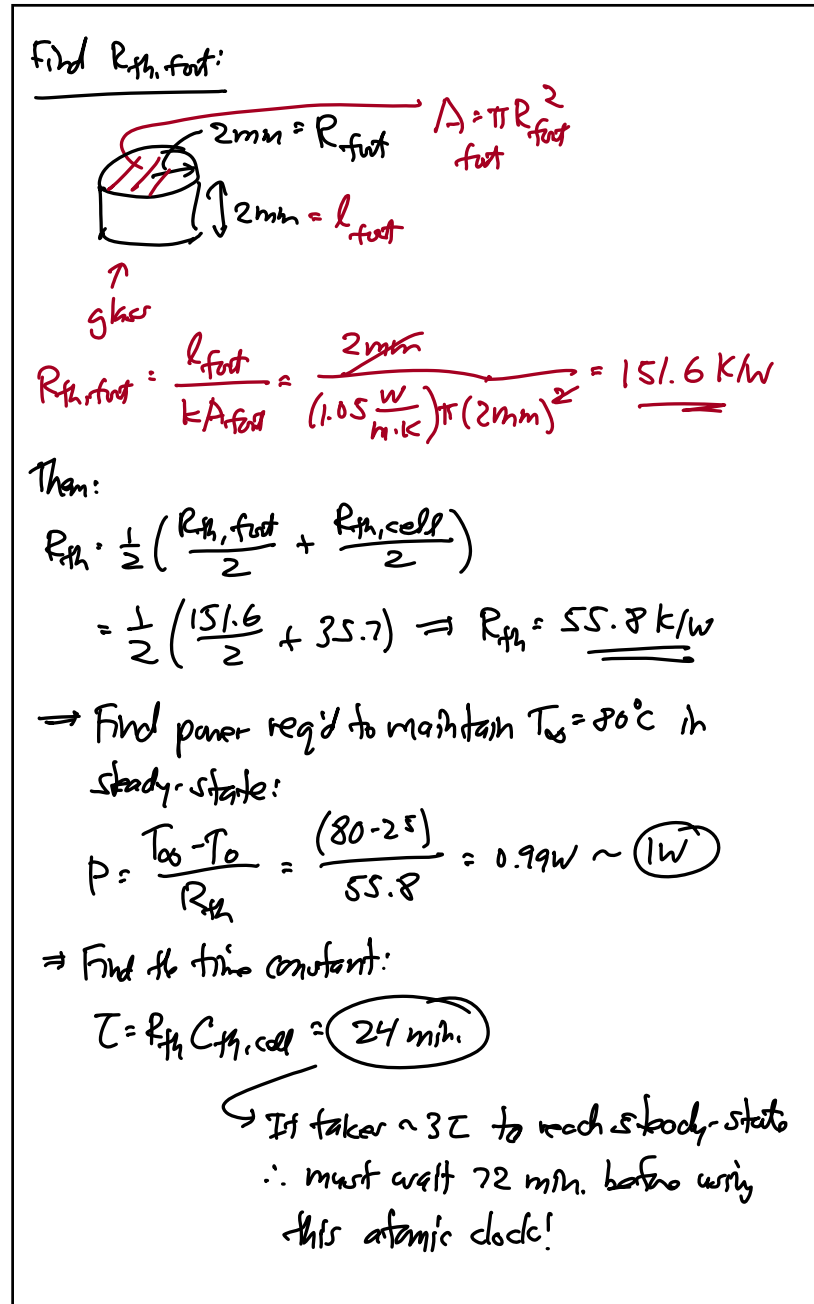 Find R_th,foot:
2mm = R_foot
A_foot = πR_foot^2
2mm = l_foot
↑
glass
R_th,foot = l_foot / kA_foot = 2mm / (1.05 W/m·K)π(2mm)^2 = 151.6 K/W
Then:
R_th = 1/2 (R_th,foot / 2 + R_th,cell / 2)
= 1/2 (151.6 / 2 + 35.7) ⇒ R_th = 55.8 K/W
⇒ Find power req'd to maintain T_∞ = 80°C in
steady-state:
P = (T_∞ - T_0) / R_th = (80-25) / 55.8 = 0.99W ~ 1W
⇒ Find the time constant:
τ = R_th C_th,cell = 24 min.
It takes ~ 3τ to reach steady-state
∴ must wait 72 min. before using
this atomic clock!